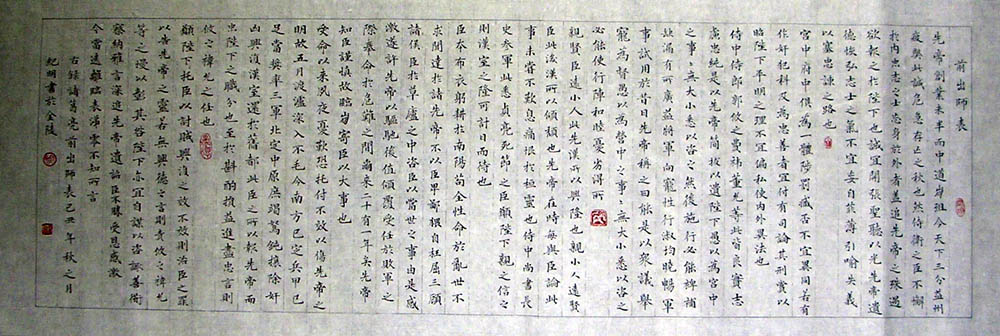 前出師表
先帝創業未半而中道崩殂今天下三分益州
疲獘此誠危急存亡之秋也然侍衛之臣不懈
於內忠志之士忘身於外者蓋追先帝之殊遇
欲報之於陛下也誠宜開張聖聽以光先帝遺
德恢弘志士之氣不宜妄自菲薄引喻失義
以塞忠諫之路也
宮中府中俱為一體陟罰臧否不宜異同若有
作奸犯科及為忠善者宜付有司論其刑賞以
昭陛下平明之理不宜偏私使內外異法也
侍中侍郎郭攸之費禕董允等此皆良實志
慮忠純是以先帝簡拔以遺陛下愚以為宮中
之事〻無大小悉以咨之然後施行必能裨補
缺漏有所廣益將軍向寵性行淑均曉暢軍
事試用於昔日先帝稱之曰能是以衆議舉
寵為督愚以為營中之事〻無大小悉以咨之
必能使行陣和睦優劣得所
親賢臣遠小人此先漢所以興隆也親小人遠賢
臣此後漢所以傾頹也先帝在時每與臣論此
事未嘗不歎息痛恨於桓靈也侍中尚書長
史參軍此悉貞亮死節之臣願陛下親之信之
則漢室之隆可計日而待也
臣本布衣躬耕於南陽苟全性命於亂世不
求聞達於諸先帝不以臣卑鄙猥自枉屈三顧
請侯臣於草廬之中諮臣以當世之事由是感
激遂許先帝以驅馳後值傾覆受任於敗軍之
際奉命於危難之間爾來二十有一年矣先帝
知臣謹慎故臨崩寄臣以大事也
受命以來夙夜憂歎恐托付不效以傷先帝之
明故五月渡瀘深入不毛今南方已定兵甲已
足當獎率三軍北定中原庶竭駑鈍攘除奸
凶興復漢室還於舊都此臣之所以報先帝而
忠陛下之職分也至於斟酌損益進盡忠言則
攸之禕允之任也
願陛下托臣以討賊興復之效不效則治臣之罪
以告先帝之靈若無興德之言則責攸之禕允
等之慢以彰其咎陛下亦宜自謀以咨諏善道
察納雅言深追先帝遺詔臣不勝受恩感激
今當遠離臨表涕零不知所言
右録諸葛亮前出師表己丑年秋之月
紀明書於金陵